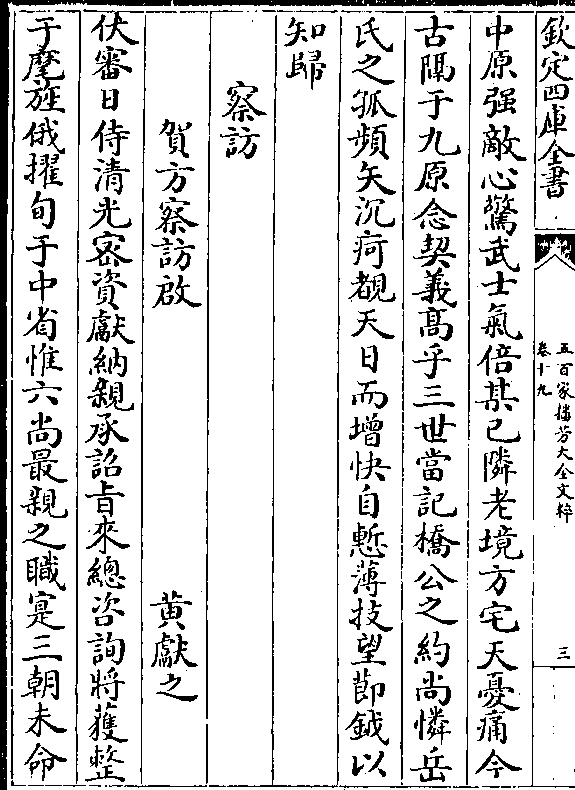 欽定四庫全書
五百家播芳大全文粹
卷十九
三
中原强敵心驚武士氣倍某已隣老境方宅天憂痛今
古隔于九原念契義髙乎三世當記橋公之約尚憐岳
氏之孤頻矢沉疴覩天日而增快自慙薄技望節鉞以
知歸
察訪
賀方察訪啟 黄獻之
伏審日侍清光密資獻納親承詔旨來總咨詢將蒦整
于麾旌俄擢旬于中省惟六尚最親之職寔三朝未命